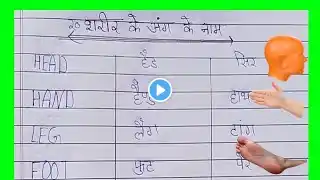 शरीर के अंग के नाम
HEAD हैड सिर
HAND हैण्ड हाथ
LEG लैग टांग
FOOT फुट पैर